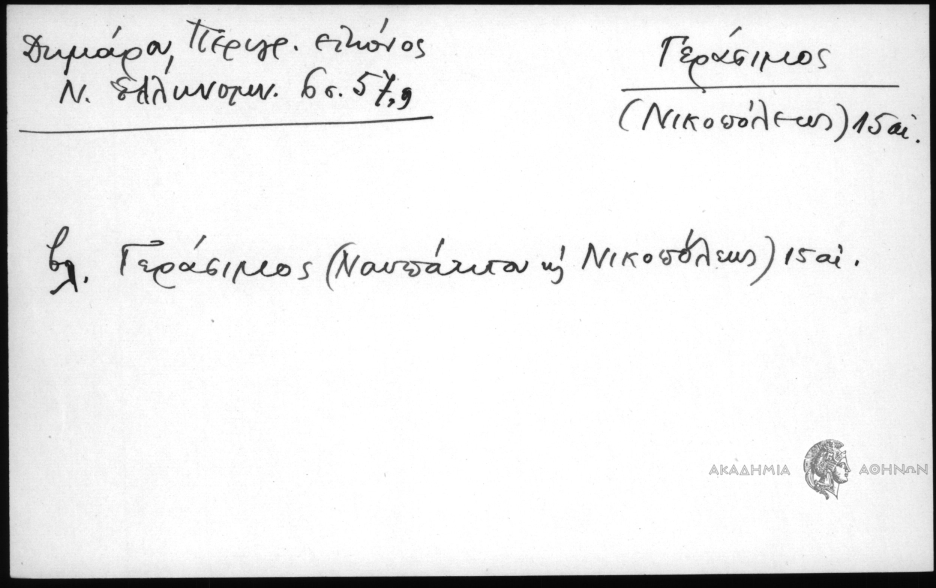 Δημάρα, Περιγρ. εικόνος
Ν. Ελληνομν. 6 σ. 57,9
Γεράσιμος
(Νικοπόλεως) 15 αἰ.
βλ. Γεράσιμος (Ναυπάκτου ἢ Νικοπόλεως) 15 αἰ.
ΑΚΑΔΗΜΙΑ ΑΘΗΝΩΝ